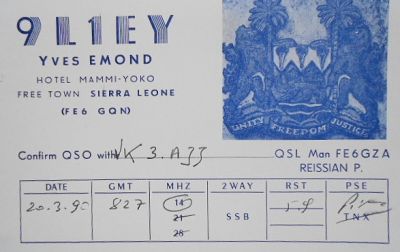 9L1EY
YVES EMOND
HOTEL MAMMI-YOKO
FREE TOWN SIERRA LEONE
(FE6 GQN)
UNITY FREEDOM JUSTICE
Confirm QSO with VK 3.AJJ QSL Man FE6GZA
REISSIAN P.
DATE GMT MHZ 2WAY RST PSE
20.3.90 827 14 SSB 59
21 TNX
28